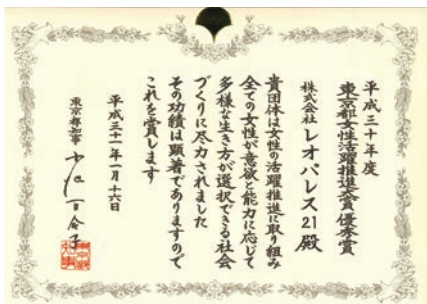 平成三十年度
東京都女性活躍推進大賞優秀賞
株式会社 レオパレス21 殿
貴団体は女性の活躍推進に取り組み
全ての女性が意欲と能力に応じて
多様な生き方が選択できる社会
づくりに尽力されました
その功績は顕著でありますので
これを賞します
平成三十一年一月十六日
東京都知事 小池百合子